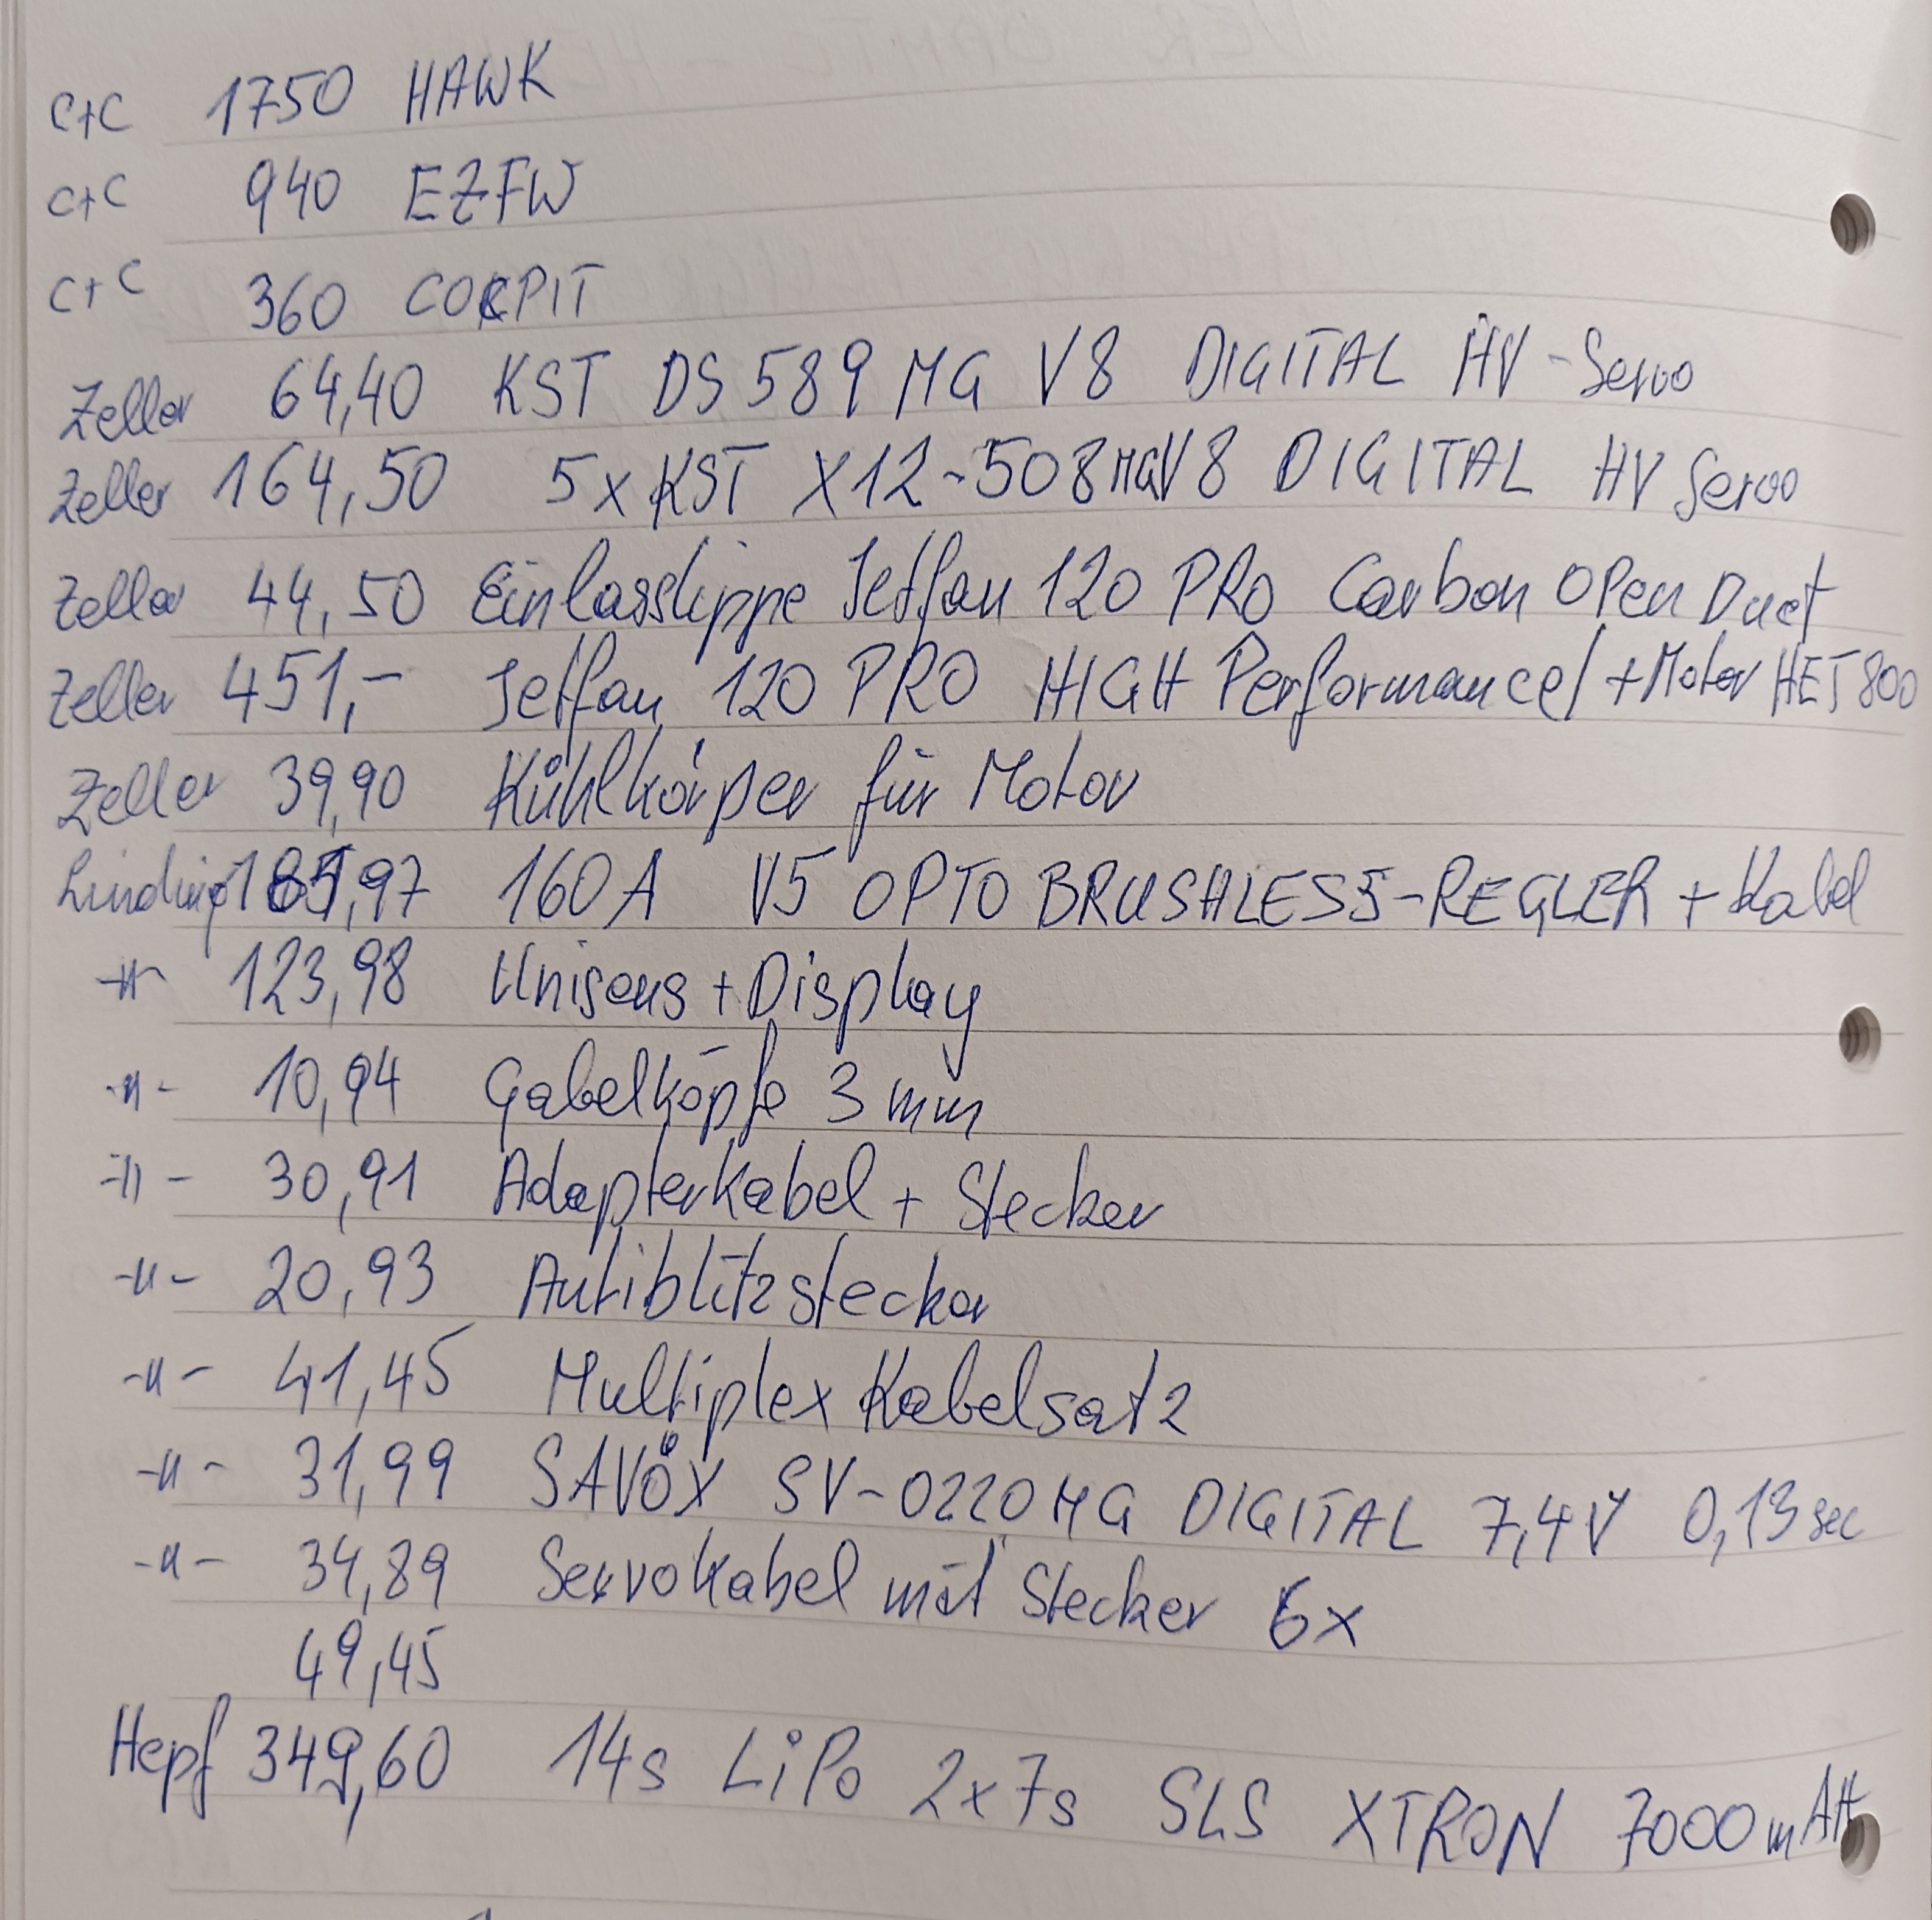 C+C 1750 HAWK
C+C 940 EZFW
C+C 360 COCKPIT
Zeller 64,40 KST DS 589 MG V8 DIGITAL HV-Servo
Zeller 164,50 5x KST X12-508MGV8 DIGITAL HV Servo
Zeller 44,50 Einlasslippe Jetfan 120 PRO Carbon Open Duct
Zeller 451,- Jetfan 120 PRO HIGH Performance/+Motor HET 800
Zeller 39,90 Kühlkörper für Motor
160A V5 OPTO BRUSHLESS-REGLER + Kabel
-"- 123,98 Unisens + Display
-"- 10,94 Gabelköpfe 3 mm
-"- 30,91 Adapterkabel + Stecker
-"- 20,93 Antiblitzstecker
-"- 41,45 Multiplex Kabelsatz
-"- 31,99 SAVÖX SV-0220MG DIGITAL 7,4V 0,13 sec
-"- 34,89 Servokabel mit Stecker 6x
49,45
Hepf 349,60 14s LiPo 2x7s SLS XTRON 7000 mAH